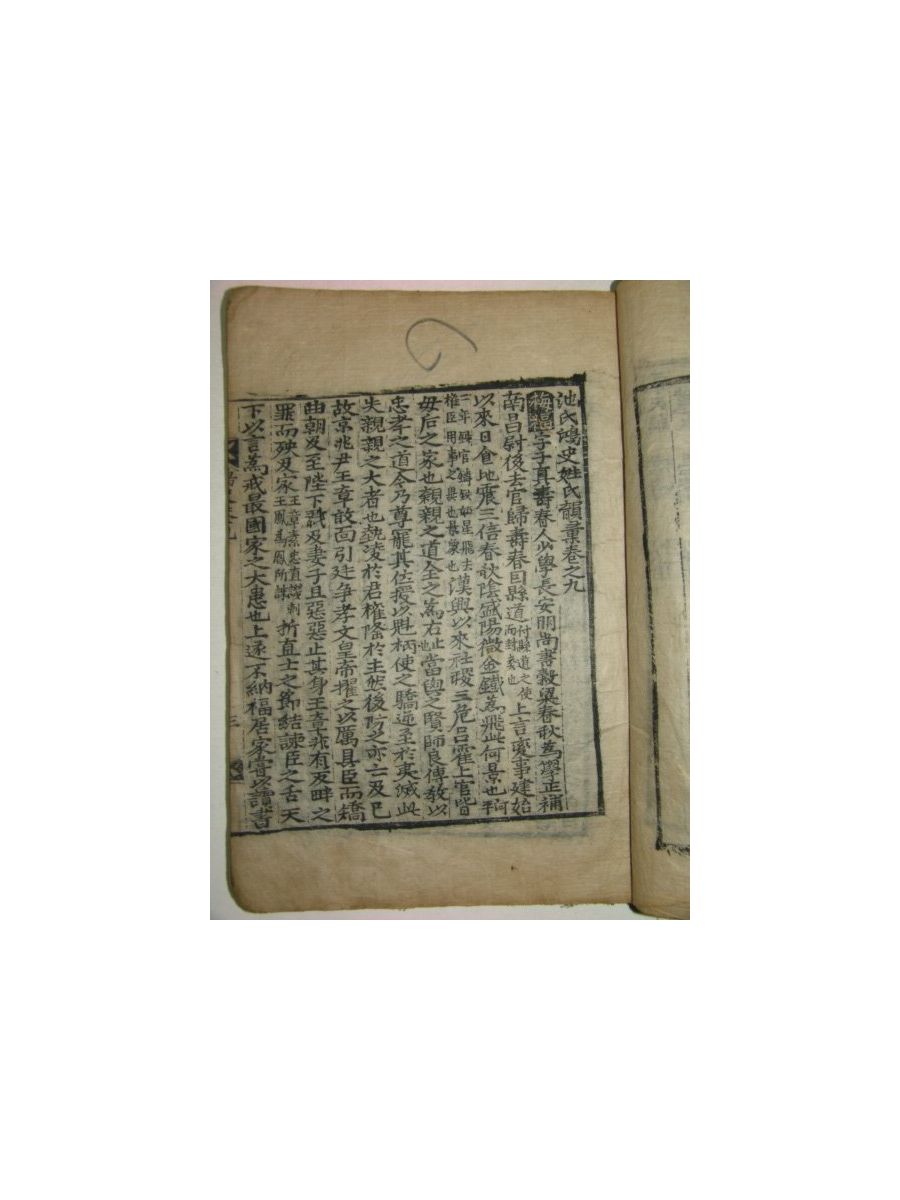 池氏鴻史姓氏韻彙卷之九
梅福字子真壽春人少學長安明尚書穀梁春秋為學正補
南昌尉後去官歸壽春因縣道附縣道之使而封奏也上言變事建始
以來日食地震三倍春秋陰盛陽微金鐵為飛此何景也河平
二年 官鑄 如星飛去權臣用事之異也 漢興以來社稷三危呂霍上官皆
毋后之家也親親之道全之為右止也當與之賢師良傅教以
忠孝之道今乃尊寵其位授以魁柄使之驕逆至於夷滅此
失親親之大者也埶陵於君權隆於主然後防之亦亡及已
故京兆尹王章敢面引廷争孝文皇帝擢之以厲具臣而矯
曲朝及至陛下戮及妻子且惡惡止其身王章非有反畔之
罪而殃及家王章素忠直譏刺王鳳為鳳所誅折直士之節結諫臣之舌天
下以言為戒最國家之大患也上遂不納福居家嘗以讀書